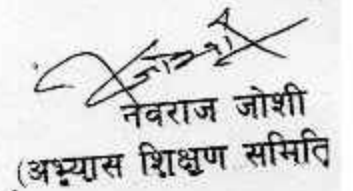 नवराज जोशी
(अभ्यास शिक्षण समिति